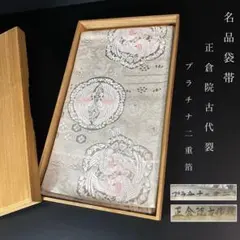 名品袋帯
正倉院古代裂
プラチナ二重箔
プラチナ二重箔
正倉院古代裂